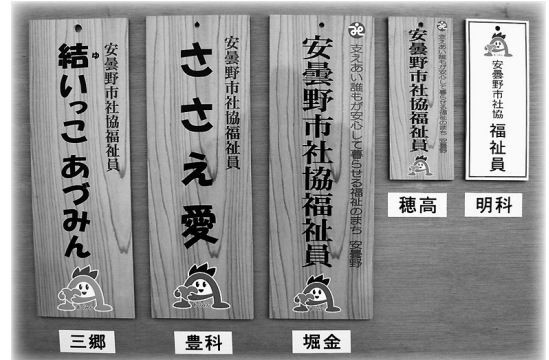 安曇野市社協福祉員
結いっこ あづみん
ゆ
三郷
安曇野市社協福祉員
ささえ愛
豊科
支えあい誰もが安心して暮らせる福祉のまち 安曇野
安曇野市社協福祉員
堀金
支えあい誰もが安心して暮らせる福祉のまち 安曇野
安曇野市社協福祉員
穂高
安曇野市社協
福祉員
明科